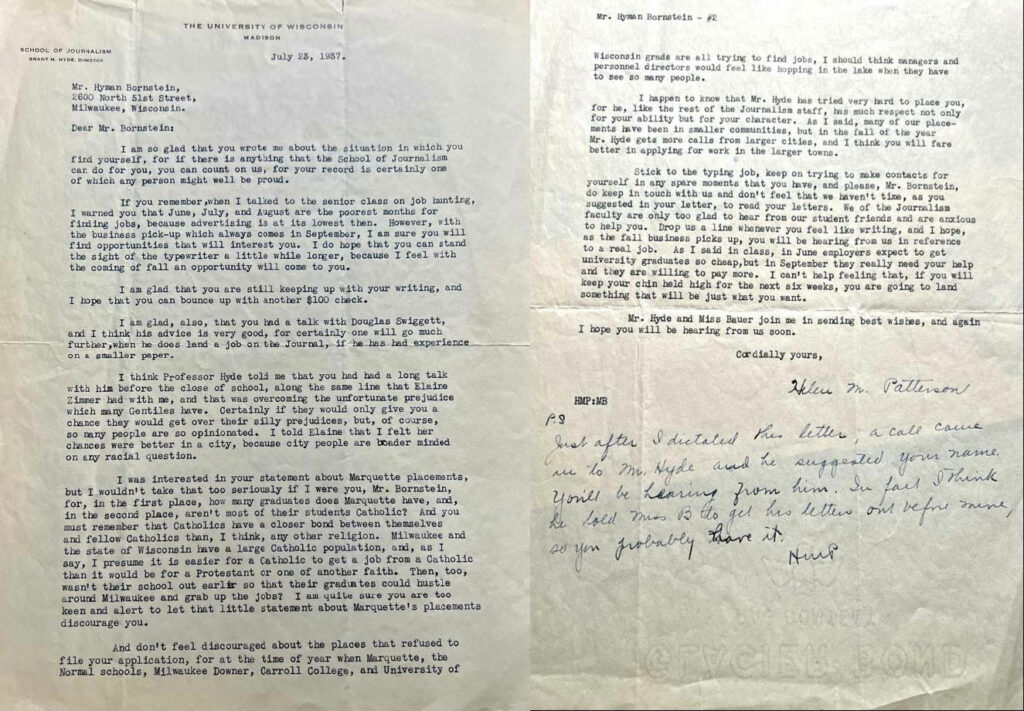 THE UNIVERSITY OF WISCONSIN
MADISON
SCHOOL OF JOURNALISM
GRANT M. HYDE, DIRECTOR
July 23, 1937.
Mr. Hyman Bornstein,
2600 North 51st Street,
Milwaukee, Wisconsin.
Dear Mr. Bornstein:
I am so glad that you wrote me about the situation in which you
find yourself, for if there is anything that the School of Journalism
can do for you, you can count on us, for your record is certainly one
of which any person might well be proud.
If you remember,when I talked to the senior class on job hunting,
I warned you that June, July, and August are the poorest months for
finding jobs, because advertising is at its lowest then. However, with
the business pick-up which always comes in September, I am sure you will
find opportunities that will interest you. I do hope that you can stand
the sight of the typewriter a little while longer, because I feel with
the coming of fall an opportunity will come to you.
I am glad that you are still keeping up with your writing, and
I hope that you can bounce up with another $100 check.
I am glad, also, that you had a talk with Douglas Swiggett,
and I think his advice is very good, for certainly one will go much
further,when he does land a job on the Journal, if he has had experience
on a smaller paper.
I think Professor Hyde told me that you had had a long talk
with him before the close of school, along the same line that Elaine
Zimmer had with me, and that was overcoming the unfortunate prejudice
which many Gentiles have. Certainly if they would only give you a
chance they would get over their silly prejudices, but, of course,
so many people are so opinionated. I told Elaine that I felt her
chances were better in a city, because city people are boader minded
on any racial question.
I was interested in your statement about Marquette placements,
but I wouldn't take that too seriously if I were you, Mr. Bornstein,
for, in the first place, how many graduates does Marquette have, and,
in the second place, aren't most of their students Catholic? And you
must remember that Catholics have a closer bond between themselves
and fellow Catholics than, I think, any other religion. Milwaukee and
the state of Wisconsin have a large Catholic population, and, as I
say, I presume it is easier for a Catholic to get a job from a Catholic
than it would be for a Protestant or one of another faith. Then, too,
wasn't their school out earlir so that their graduates could hustle
around Milwaukee and grab up the jobs? I am quite sure you are too
keen and alert to let that little statement about Marquette's placements
discourage you.
And don't feel discouraged about the places that refused to
file your application, for at the time of year when Marquette, the
Normal schools, Milwaukee Downer, Carroll College, and University of
Mr. Hyman Bornstein - #2
Wisconsin grads are all trying to find jobs, I should think managers and
personnel directors would feel like hopping in the lake when they have
to see so many people.
I happen to know that Mr. Hyde has tried very hard to place you,
for he, like the rest of the Journalism staff, has much respect not only
for your ability but for your character. As I said, many of our place-
ments have been in smaller communities, but in the fall of the year
Mr. Hyde gets more calls from larger cities, and I think you will fare
better in applying for work in the larger towns.
Stick to the typing job, keep on trying to make contacts for
yourself in any spare moments that you have, and please, Mr. Bornstein,
do keep in touch with us and don't feel that we haven't time, as you
suggested in your letter, to read your letters. We of the Journalism
faculty are only too glad to hear from our student friends and are anxious
to help you. Drop us a line whenever you feel like writing, and I hope,
as the fall business picks up, you will be hearing from us in reference
to a real job. As I said in class, in June employers expect to get
university graduates so cheap,but in September they really need your help
and they are willing to pay more. I can't help feeling that, if you will
keep your chin held high for the next six weeks, you are going to land
something that will be just what you want.
Mr. Hyde and Miss Bauer join me in sending best wishes, and again
I hope you will be hearing from us soon.
Cordially yours,
Helen M. Patterson
HMP:MB
P.S
Just after I dictated this letter, a call came
in to Mr. Hyde and he suggested your name.
You'll be hearing from him. In fact I think
he told Miss B to get his letters out before mine,
so you probably have it.
HMP